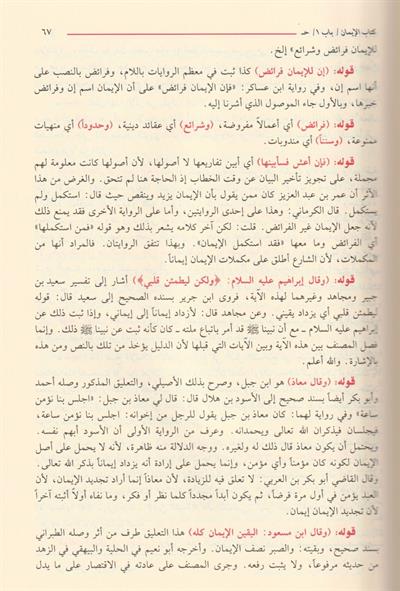 كتاب الإيمان/ باب ١/ حـ
٦٧
للإيمان فرائض وشرائع» إلخ.
قوله: (إن للإيمان فرائض) كذا ثبت في معظم الروايات باللام، وفرائض بالنصب على
أنها اسم إن، وفي رواية ابن عساكر: «فإن الإيمان فرائض» على أن الإيمان اسم إن وفرائض
خبرها، وبالأول جاء الموصول الذي أشرنا إليه.
قوله: (فرائض) أي أعمالاً مفروضة، (وشرائع) أي عقائد دينية، (وحدوداً) أي منهيات
ممنوعة، (وسنناً) أي مندوبات.
قوله: (فإن أعش فسأبينها) أي أبين تفاريعها لا أصولها، لأن أصولها كانت معلومة لهم
مجملة، على تجويز تأخير البيان عن وقت الخطاب إذ الحاجة هنا لم تتحقق. والغرض من هذا
الأثر أن عمر بن عبد العزيز كان ممن يقول بأن الإيمان يزيد وينقص حيث قال: استكمل ولم
يستكمل. قال الكرماني: وهذا على إحدى الروايتين، وأما على الرواية الأخرى فقد يمنع ذلك
لأنه جعل الإيمان غير الفرائض. قلت: لكن آخر كلامه يشعر بذلك وهو قوله «فمن استكملها»
أي الفرائض وما معها «فقد استكمل الإيمان». وبهذا تتفق الروايتان. فالمراد أنها من
المكملات، لأن الشارع أطلق على مكملات الإيمان إيماناً.
قوله: (وقال إبراهيم عليه السلام: ﴿ولكن ليطمئن قلبي﴾) أشار إلى تفسير سعيد بن
جبير ومجاهد وغيرهما لهذه الآية، فروى ابن جرير بسنده الصحيح إلى سعيد قال: قوله
ليطمئن قلبي أي يزداد يقيني. وعن مجاهد قال: لأزداد إيماناً إلى إيماني، وإذا ثبت ذلك عن
إبراهيم عليه السلام ـ مع أن نبينا ﷺ قد أمر باتباع ملته ـ كان كأنه ثبت عن نبينا ﷺ ذلك. وإنما
فصل المصنف بين هذه الآية وبين الآيات التي قبلها لأن الدليل يؤخذ من تلك بالنص ومن هذه
بالإشارة. والله أعلم.
قوله: (وقال معاذ) هو ابن جبل، وصرح بذلك الأصيلي، والتعليق المذكور وصله أحمد
وأبو بكر أيضاً بسند صحيح إلى الأسود بن هلال قال: قال لي معاذ بن جبل: «اجلس بنا نؤمن
ساعة» وفي رواية لهما: كان معاذ بن جبل يقول للرجل من إخوانه: اجلس بنا نؤمن ساعة،
فيجلسان فيذكران الله تعالى ويحمدانه. وعرف من الرواية الأولى أن الأسود أبهم نفسه.
ويحتمل أن يكون معاذ قال ذلك له ولغيره. ووجه الدلالة منه ظاهرة، لأنه لا يحمل على أصل
الإيمان لكونه كان مؤمناً وأي مؤمن، وإنما يحمل على إرادة أنه يزداد إيماناً بذكر الله تعالى.
وقال القاضي أبو بكر بن العربي: لا تعلق فيه للزيادة، لأن معاذاً إنما أراد تجديد الإيمان، لأن
العبد يؤمن في أول مرة فرضاً، ثم يكون أبداً مجدداً كلما نظر أو فكر، وما نفاه أولاً أثبته آخراً
لأن تجديد الإيمان إيمان.
قوله: (وقال ابن مسعود: اليقين الإيمان كله) هذا التعليق طرف من أثر وصله الطبراني
بسند صحيح، وبقيته: والصبر نصف الإيمان. وأخرجه أبو نعيم في الحلية والبيهقي في الزهد
من حديثه مرفوعاً، ولا يثبت رفعه. وجرى المصنف على عادته في الاقتصار على ما يدل